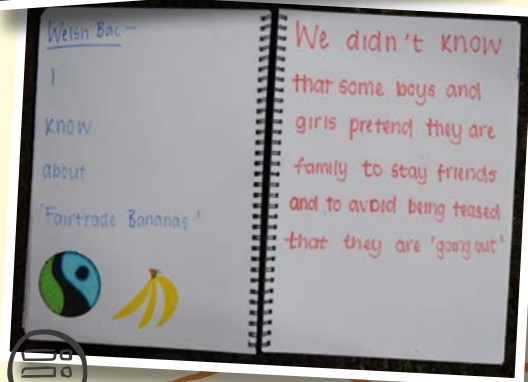 Welsh Bac -
I
know
about
'Fairtrade Bananas'
We didn't know
that some boys and
girls pretend they are
family to stay friends
and to avoid being teased
that they are 'going out'